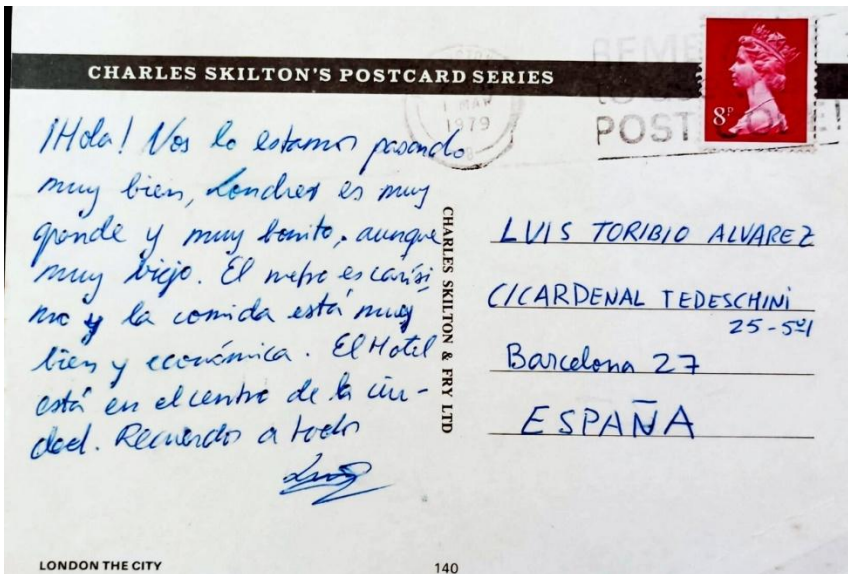 CHARLES SKILTON'S POSTCARD SERIES
1 MAR
1979
REME
POST
8P
¡Hola! Nos lo estamos pasando
muy bien, Londres es muy
grande y muy bonito, aunque
muy viejo. El metro es carísi
mo y la comida está muy
bien y económica. El Hotel
está en el centro de la ciu-
dad. Recuerdos a todos
CHARLES SKILTON & FRY LTD
LUIS TORIBIO ALVAREZ
C/CARDENAL TEDESCHINI
25-5º1
Barcelona 27
ESPAÑA
LONDON THE CITY
140